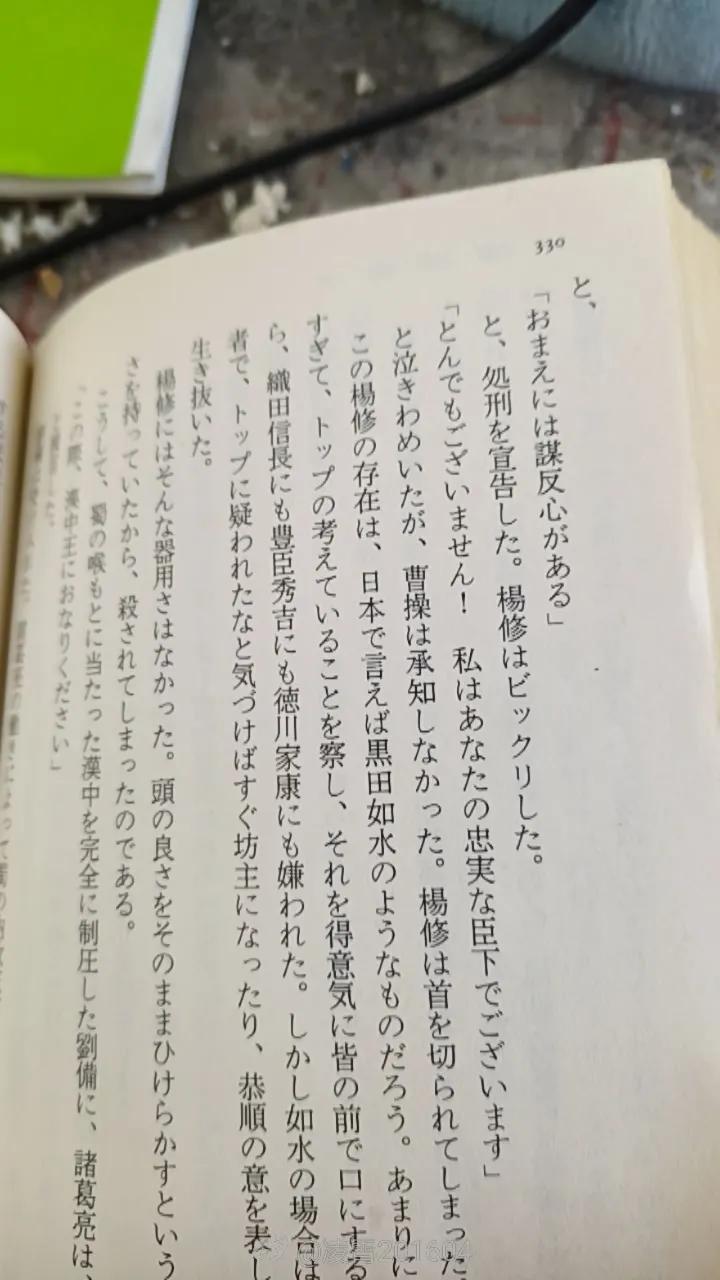 330
と、
「おまえには謀反心がある」
と、処刑を宣告した。楊修はビックリした。
「とんでもございません！　私はあなたの忠実な臣下でございます」
と泣きわめいたが、曹操は承知しなかった。楊修は首を切られてしまった
この楊修の存在は、日本で言えば黒田如水のようなものだろう。あまりに
すぎて、トップの考えていることを察し、それを得意気に皆の前で口にする
ら、織田信長にも豊臣秀吉にも徳川家康にも嫌われた。しかし如水の場合は
者で、トップに疑われたなと気づけばすぐ坊主になったり、恭順の意を表し
生き抜いた。
楊修にはそんな器用さはなかった。頭の良さをそのままひけらかすという
さを持っていたから、殺されてしまったのである。
こうして、蜀の喉もとに当たった漢中を完全に制圧した劉備に、諸葛亮は、
「この際、漢中王におなりください」